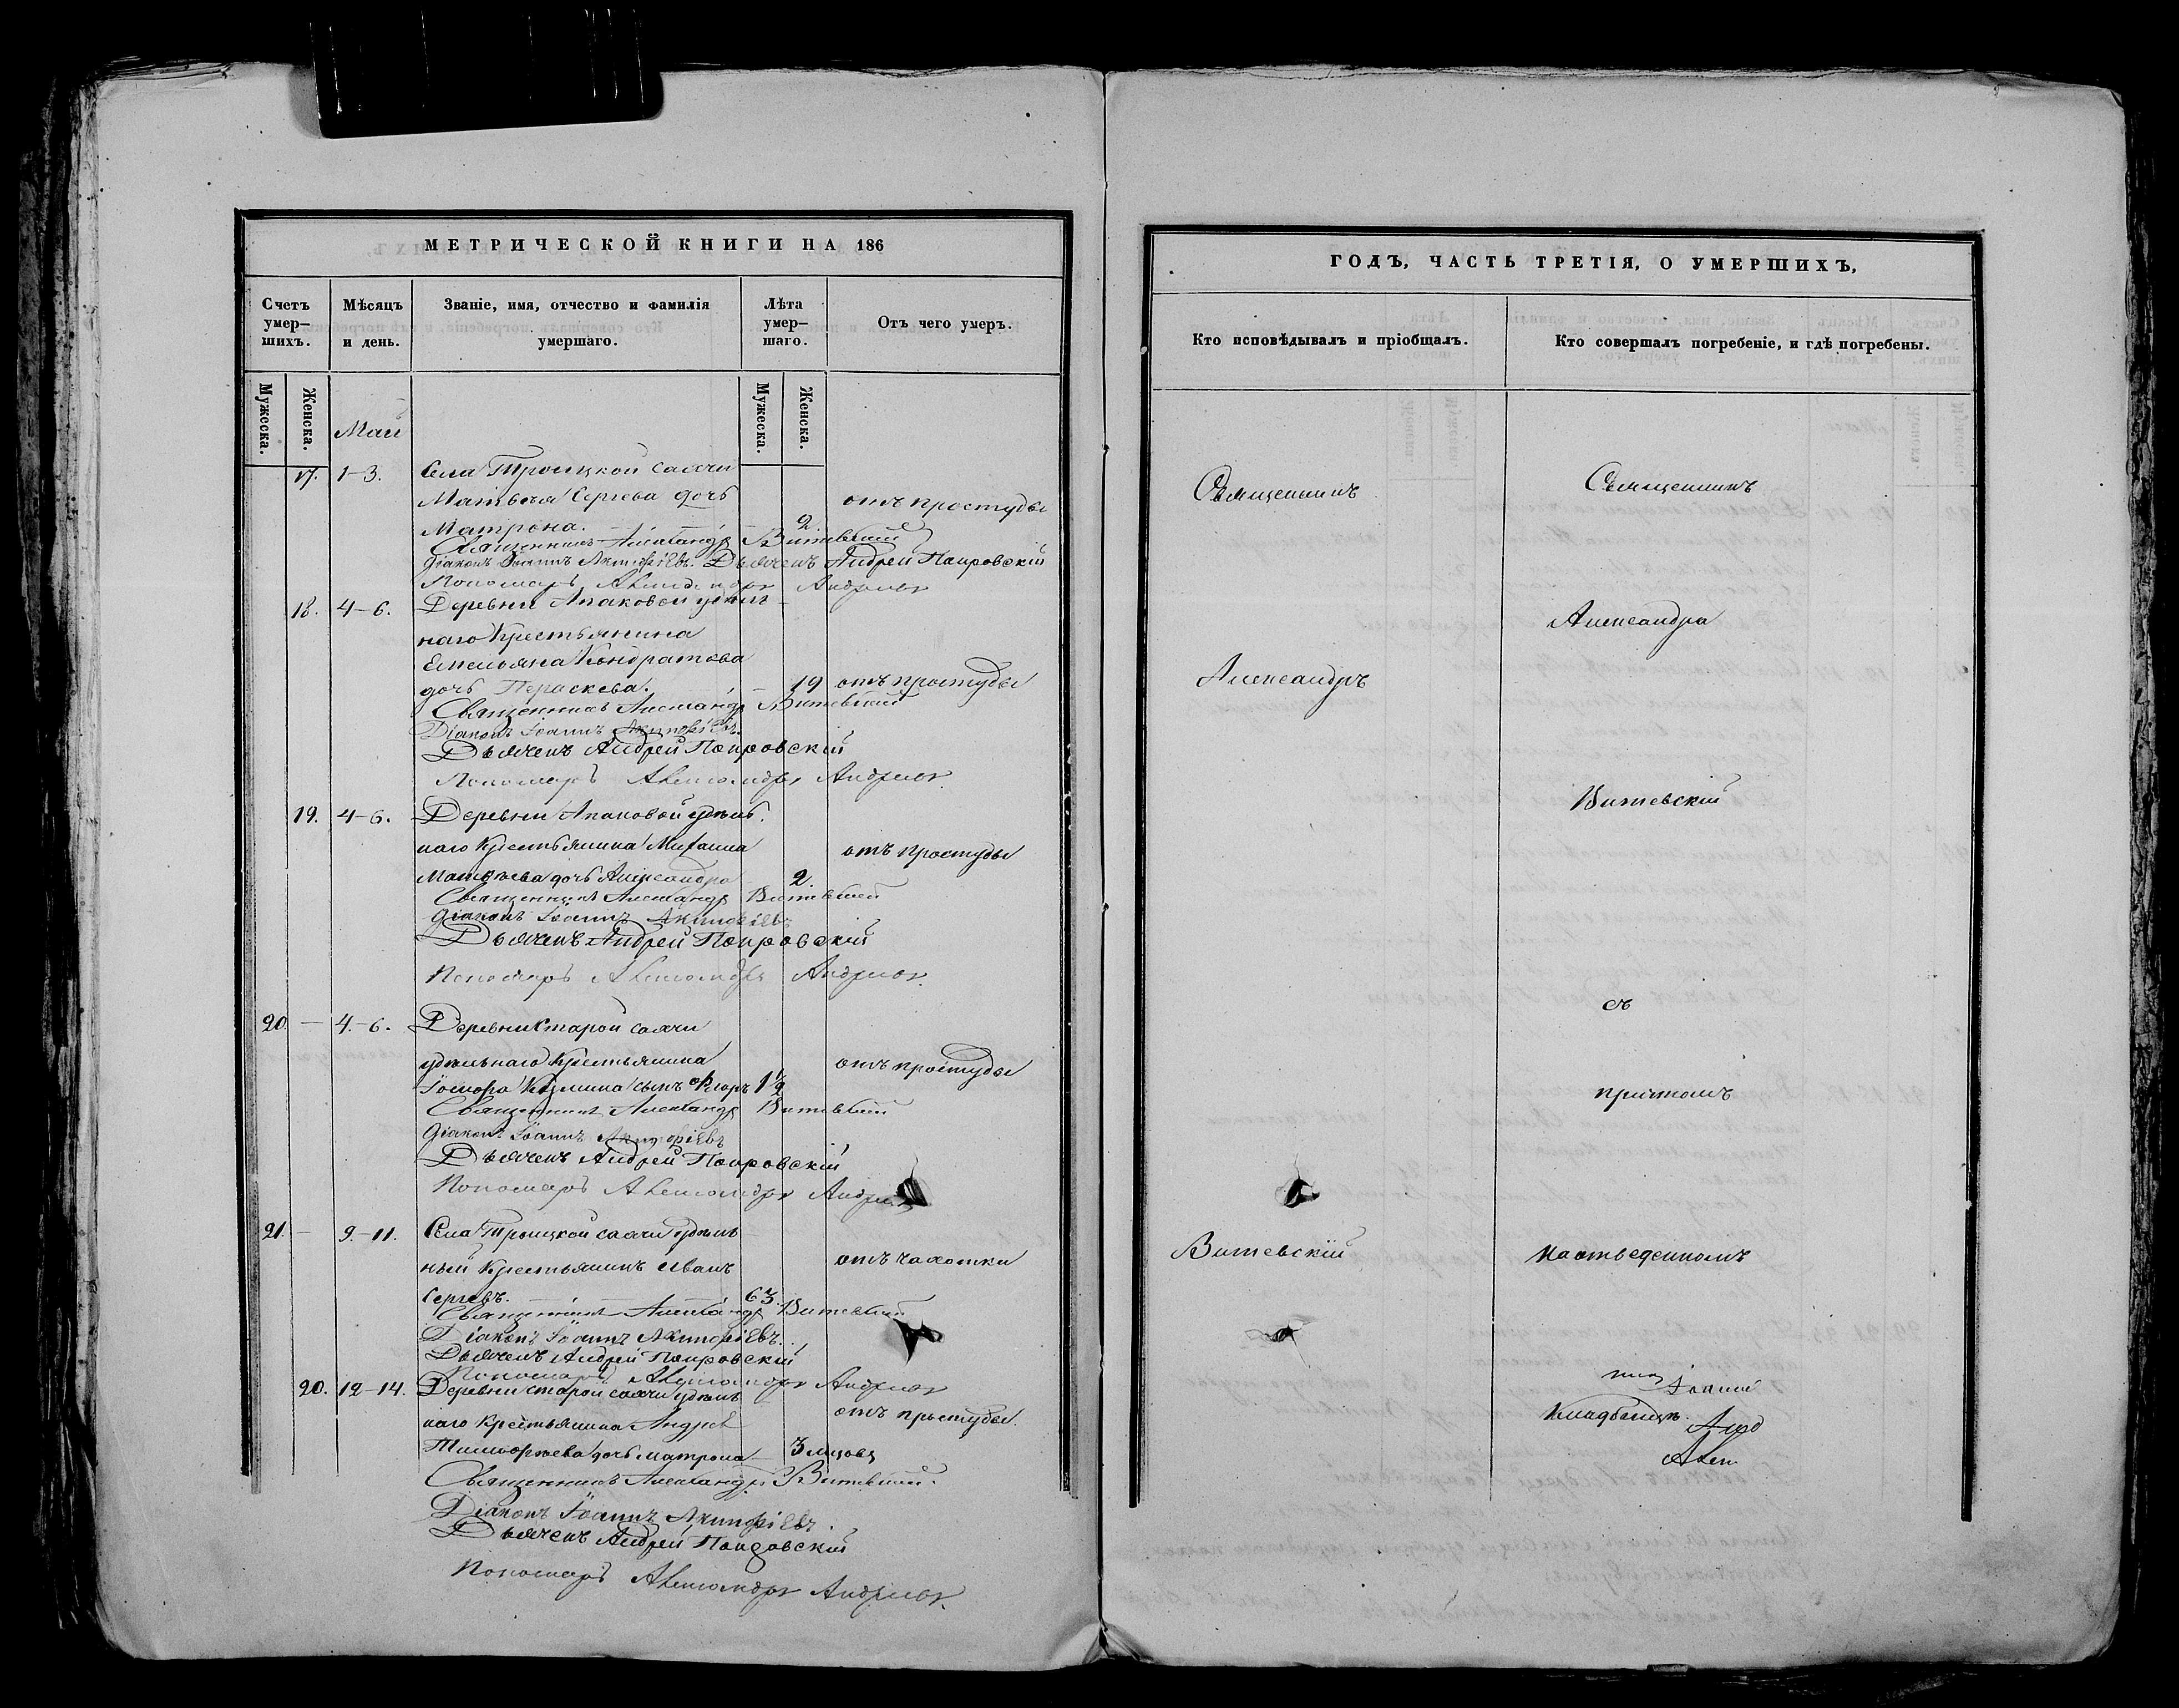 МЕТРИЧЕСКОЙ КНИГИ НА 186
Счетъ умер–шихъ.
Мѣсяцъ и день.
Званіе, имя, отчество и фамилія умершаго.
Лѣта умер–шаго.
Отъ чего умеръ.
Мужеска.
Женска.
Мужеска.
Женска.
Май
17. 1–3. Села Троицкой салчи
Матвѣя Сергева дочь
отъ простуды
Матрона. 2.
Священникъ Александръ Витевскій
Діаконъ Іоаннъ Дьячекъ Андрей Покровскій
Пономарь Александръ Андреевъ
18. 4–6. Деревни Апаковой удѣль
наго Крестьянина
Емельяна Кондратева
дочь Параскева. 19 отъ простуды
Священникъ Александръ Витевскій
Діаконъ Іоаннъ
Дьячекъ Андрей Покровскій
Пономарь Александръ Андреевъ.
19. 4–6. Деревни Апаковой удѣль
наго Крестьянина Михаила
отъ простуды
дочь Александра 2.
Священникъ Александръ Витевскій
Діаконъ Іоаннъ
Дьячекъ Андрей Покровскій
Пономарь Александръ Андреевъ.
20. – 4.–6. Деревни Старой салчи
удѣльнаго Крестьянина
отъ простуды
Козмина сынъ 1½
Священникъ Александръ Витевскій
Діаконъ Іоаннъ
Дьячекъ Андрей Покровскій
Пономарь Александръ
21. – 9.–11. Села Троицкой салчи удѣль
ный Крестьянинъ Иванъ
отъ чахотки
Сергевъ. 63
Священникъ Александръ Витевскій
Діаконъ Іоаннъ
Дьячекъ Андрей Покровскій
Пономарь Александръ Андреевъ
20. 12–14. Деревни старой салчи удѣль
наго Крестьянина Андрея
отъ простуды.
дочь матрона 3
Священникъ Александръ Витевскій.
Діаконъ Іоаннъ
Дьячекъ Андрей Покровскій
Пономарь Александръ Андреевъ.
ГОДЪ, ЧАСТЬ ТРЕТІЯ, О УМЕРШИХЪ,
Кто исповѣдывалъ и пріобщалъ.
Кто совершалъ погребеніе, и гдѣ погребены.
Священникъ
Александръ
Витевскій
Священникъ
Александра
Витевскій
съ
причтомъ
на отведенномъ
Кладбищѣ.